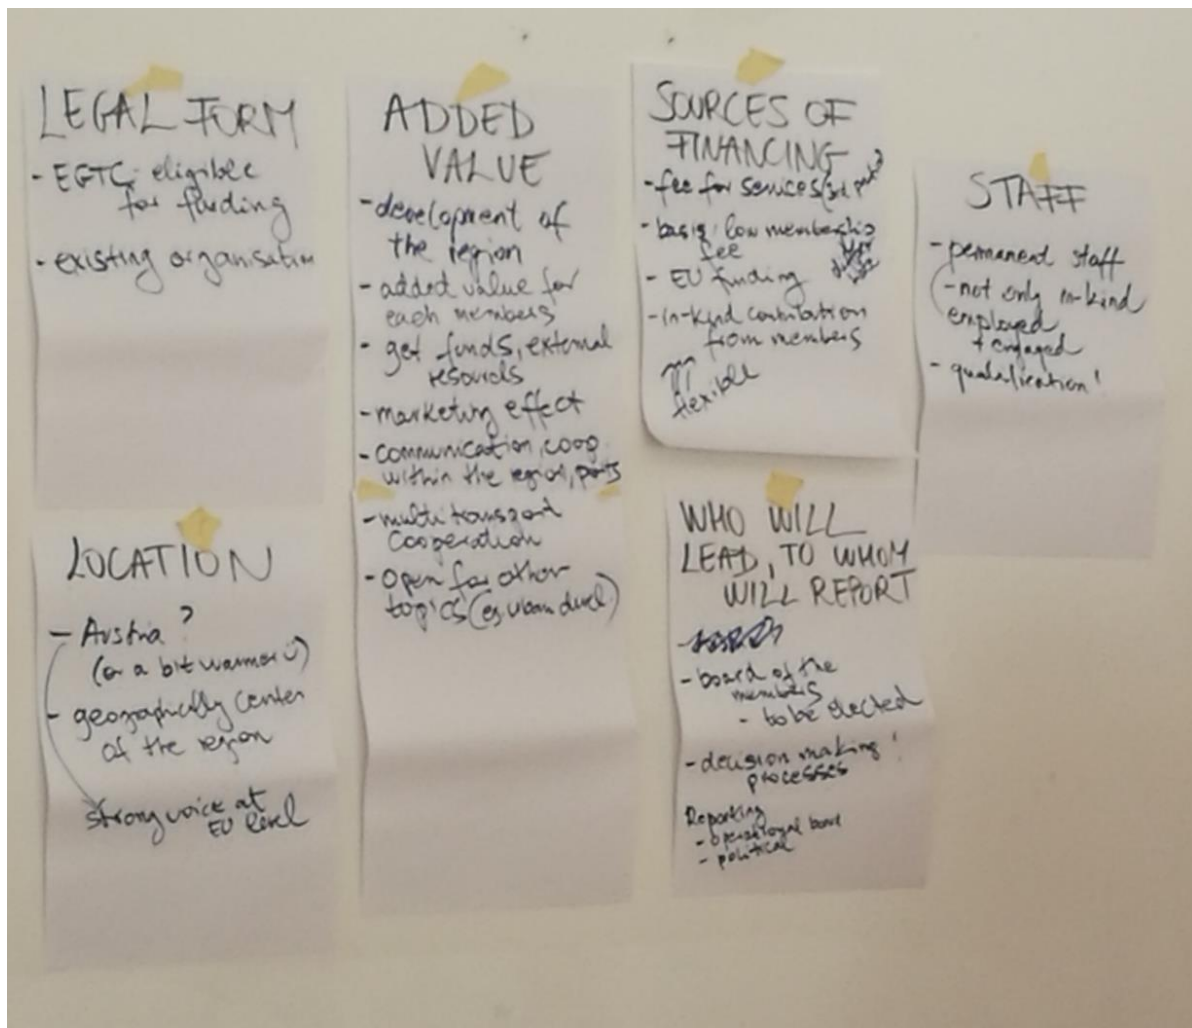 LEGAL FORM
- EGTC: eligible
for funding
- existing organisation
LOCATION
- Austria?
(or a bit warmer :))
- geographically center
of the region
strong voice at
EU level
ADDED
VALUE
- development of
the region
- added value for
each members
- get funds, external
resources
- marketing effect
- communication, coop
within the region, ports
- multi transport
Cooperation
- Open for other
topics (eg urban devel)
SOURCES OF
FINANCING
- fee for services (3rd
- basis: low membership
fee
- EU funding
- in-kind contribution
from members
flexible
WHO WILL
LEAD, TO WHOM
WILL REPORT
- board of the
members
- to be elected
- decision making!
processes
Reporting
- operational
- political
STAFF
- permanent staff
(- not only in-kind
employed
+ engaged
- qualification!